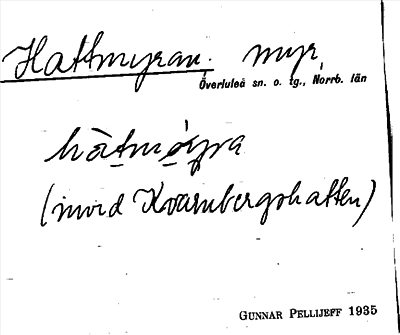 Hattmyran, myr,
Överluleå sn. o. tg., Norrb. län
hàtmó̱yra
(invid Kvarnbergshatten)
GUNNAR PELLIJEFF 1935